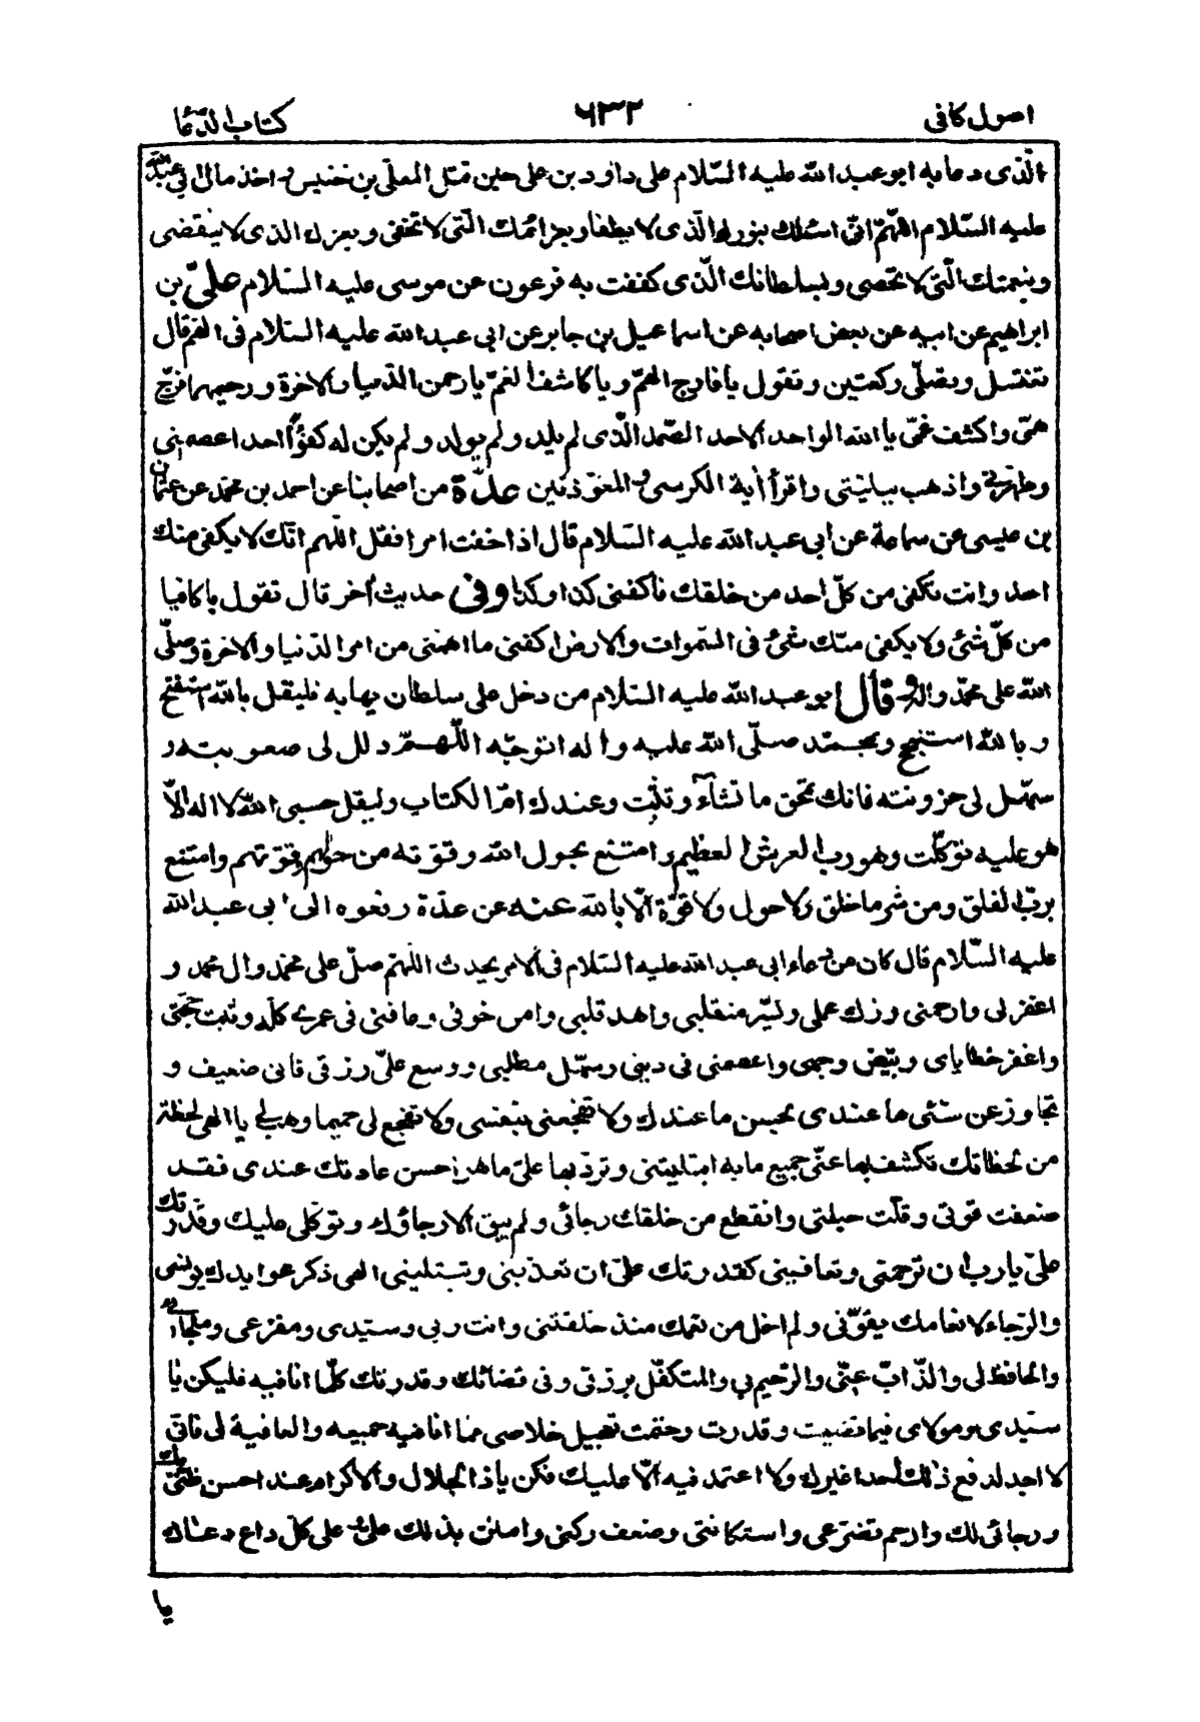 اصول كافى ٦٣٢ كتاب الدّعا
الّذى دعا به ابو عبد الله عليه السّلام على داود بن على حين قتل المعلّى بن خنيس و اخذ مال ابى عبد الله
عليه السّلام اللّهمّ انّى اسئلك بنورك الّذى لا يطفا و بعزائمك الّتى لا تخفى و بعزك الذى لا ينقضى
و بنعمتك الّتى لا تحصى و بسلطانك الّذى كففت به فرعون عن موسى عليه السّلام علىّ بن
ابراهيم عن ابيه عن بعض اصحابه عن اسماعيل بن جابر عن ابى عبد الله عليه السّلام فى الهم قال
تغتسل و تصلّى ركعتين و تقول يا فارج الهمّ و يا كاشف الغمّ يا رحمن الدّنيا و الاخرة و رحيمهما فرّج
همّى و اكشف غمّى يا الله الواحد الاحد الصّمد الّذى لم يلد و لم يولد و لم يكن له كفوًا احد اعصمنى
و طهرنى و اذهب ببليّتى و اقرأ أية الكرسى و المعوّذتين عدّة من اصحابنا عن احمد بن محمّد عن عثمان
بن عيسى عن سماعة عن ابى عبد الله عليه السّلام قال اذا خفت امرا فقل اللّهم انّك لا يكفى منك
احد و انت تكفى من كلّ احد من خلقك فاكفنى كذا و كذا و فى حديث أخر قال تقول يا كافيا
من كلّ شئ و لا يكفى منك شئ فى السّموات و الارض اكفنى ما اهمّنى من امر الدّنيا و الاخرة و صلّى
الله على محمّد و اله و قال ابو عبد الله عليه السّلام من دخل على سلطان يهابه فليقل بالله استفتح
و بالله استنجح و بمحمّد صلّى الله عليه و اله اتوجّه اللّهمّ ذلل لى صعوبته و
سهّل لى حزونته فانك تمحق ما تشآء و تثبت و عندك امّ الكتاب و ليقل حسبى الله لا اله الاّ
هو عليه توكّلت و هو رب العرش العظيم و امتنع بحول الله و قوّته من حولهم و قوّتهم و امتنع
بربّ الفلق و من شر ما خلق و لا حول و لا قوّة الّا بالله عنه عن عدّة رفعوه الى ابى عبد الله
عليه السّلام قال كان من دعاء ابى عبد الله عليه السّلام فى الامر يحدث اللّهمّ صلّ على محمّد و ال محمد و
اغفر لى و ارحمنى و زك عملى و يسّر منقلبى و اهد قلبى و امن خوفى و عافنى فى عمرى كلّه و ثبت حجّتى
و اغفر خطاياى و بيّض وجهى و اعصمنى فى دينى و سهّل مطلبى و وسع علىّ رزقى فانى ضعيف و
تجاوز عن سيّئى ما عندى بحسن ما عندك و لا تفجعنى بنفسى و لا تفجع لى حميما و هب لى يا الهى لحظة
من لحظاتك تكشف بها عنّى جميع ما به ابتليتنى و تردّ بها علىّ ما هو احسن عادتك عندى فقد
ضعفت قوتى و قلّت حيلتى و انقطع من خلقك رجائى و لم يبق الا رجاؤك و توكّلى عليك و قدرتك
علىّ يا رب ان ترحمنى و تعافينى كقدرتك علىّ ان تعذّبنى و تبتلينى الهى ذكر عوايدك يونسنى
و الرّجاء لانعامك يقوّينى و لم اخل من نعمك منذ خلقتنى و انت ربى و سيّدى و مفزعى و ملجائى
و الحافظ لى و الذّابّ عنّى و الرّحيم بى و المتكفّل برزقى و فى قضائك و قدرتك كلّما انا فيه فليكن يا
سيّدى و مولاى فيما قضيت و قدرت و حتمت تعجيل خلاصى ممّا انا فيه جميعه و العافية لى فانّى
لا اجد لدفع ذلك احدا غيرك و لا اعتمد فيه الّا عليك فكن يا ذا الجلال و الاكرام عند احسن ظنّى بك
و رجائى لك و ارحم تضرّعى و استكانتى و ضعف ركنى و امنن بذلك علىّ و على كلّ داع دعاك
يا